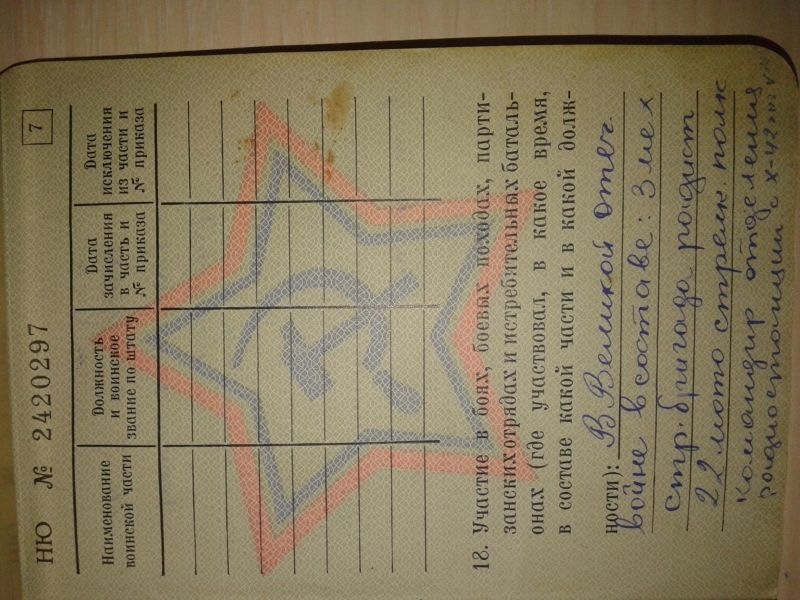 НЮ № 2420297
7
Наименование воинской части
Должность и воинское звание по штату
Дата зачисления в часть и № приказа
Дата исключения из части и № приказа
12. Участие в боях, боевых походах, парти-
занских отрядах и истребительных баталь-
онах (где участвовал, в какое время,
в составе какой части и в какой долж-
ности): В Великой отеч.
войне в составе: 3 мех.
стр. бригада радист
22 мото стрелк полк
командир отделения
радиостанции с X-42